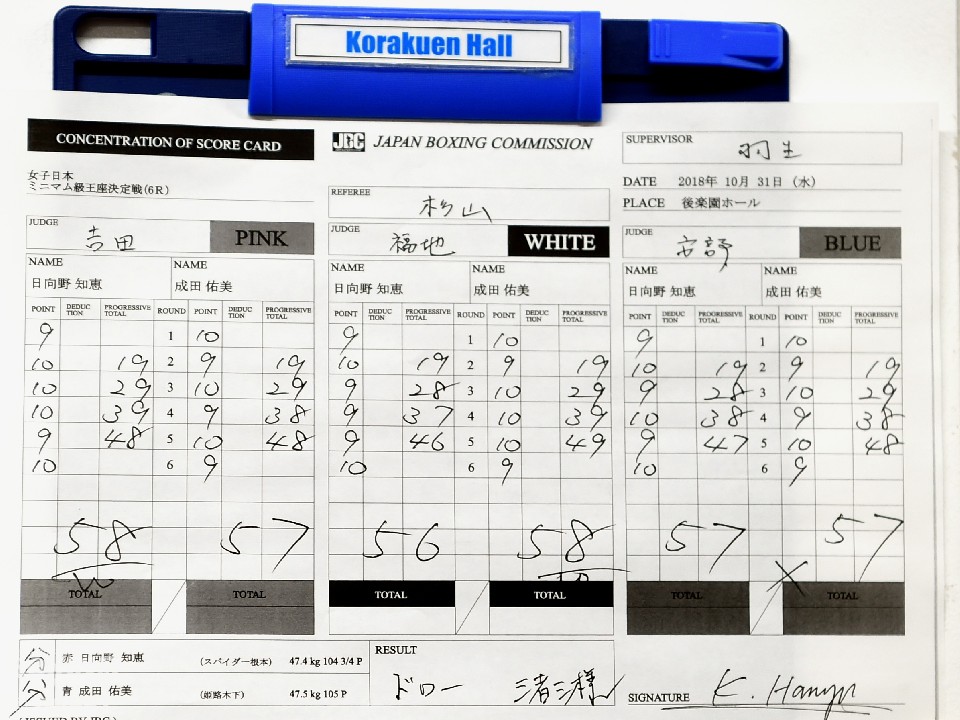 Korakuen Hall
CONCENTRATION OF SCORE CARD
JBC JAPAN BOXING COMMISSION
SUPERVISOR 羽生
女子日本
ミニマム級王座決定戦(6R)
REFEREE 杉山
DATE 2018年 10月 31日 (水)
PLACE 後楽園ホール
JUDGE 吉田 PINK
JUDGE 福地 WHITE
JUDGE 安部 BLUE
NAME NAME NAME NAME NAME NAME
日向野 知恵 成田 佑美 日向野 知恵 成田 佑美 日向野 知恵 成田 佑美
POINT DEDUCTION PROGRESSIVE TOTAL ROUND POINT DEDUCTION PROGRESSIVE TOTAL POINT DEDUCTION PROGRESSIVE TOTAL ROUND POINT DEDUCTION PROGRESSIVE TOTAL POINT DEDUCTION PROGRESSIVE TOTAL ROUND POINT DEDUCTION PROGRESSIVE TOTAL
9 1 10 9 1 10 9 1 10
10 19 2 9 19 10 19 2 9 19 10 19 2 9 19
10 29 3 10 29 9 28 3 10 29 9 28 3 10 29
10 39 4 9 38 9 37 4 10 39 10 38 4 9 38
9 48 5 10 48 9 46 5 10 49 9 47 5 10 48
10 6 9 10 6 9 10 6 9
58 57 56 58 57 57
TOTAL TOTAL TOTAL TOTAL TOTAL TOTAL
分 赤 日向野 知恵 (スパイダー根本) 47.4 kg 104 3/4 P
分 青 成田 佑美 (姫路木下) 47.5 kg 105 P
RESULT
ドロー 三者三様
SIGNATURE K. Hanyu